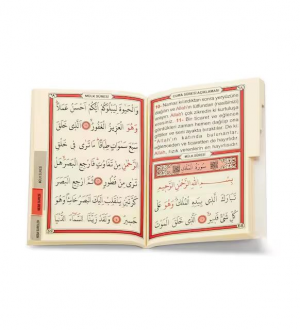 CUMA SURESİ AÇIKLAMASI
10- Namaz kılındıktan sonra yeryüzüne
dağılın ve Allah'ın lütfundan (nasibinizi)
arayın; Allah'ı çok zikredin ki kurtuluşa
11- Bir ticaret ve eğlence
gördükleri zaman hemen dağılıp ona
gittiler ve seni ayakta bıraktılar. De ki:
"Allah'ın katında bulunanlar,
eğlenceden ve ticaretten de hayırlıdır.
Allah, rızık verenlerin en hayırlısıdır.
MÜLK SURESİ
بِسْمِ اللّٰهِ الرَّحْمٰنِ الرَّحِيمِ
تَبَارَكَ الَّذِى بِيَدِهِ الْمُلْكُ وَهُوَ عَلٰى
كُلِّ شَىْءٍ قَدِيرٌ الَّذِى خَلَقَ الْمَوْتَ
MÜLK SURESİ
وَالْحَيٰوةَ لِيَبْلُوَكُمْ اَيُّكُمْ اَحْسَنُ عَمَلًا
وَهُوَ الْعَزِيزُ الْغَفُورُ الَّذِى خَلَقَ
سَبْعَ سَمٰوَاتٍ طِبَاقًا مَا تَرٰى فِى
خَلْقِ الرَّحْمٰنِ مِنْ تَفَاوُتٍ فَارْجِعِ الْبَصَرَ هَلْ
تَرٰى مِنْ فُطُورٍ ثُمَّ ارْجِعِ الْبَصَرَ
كَرَّتَيْنِ يَنْقَلِبْ اِلَيْكَ الْبَصَرُ خَاسِئًا وَهُوَ
حَسِيرٌ وَلَقَدْ زَيَّنَّا السَّمَاءَ الدُّنْيَا